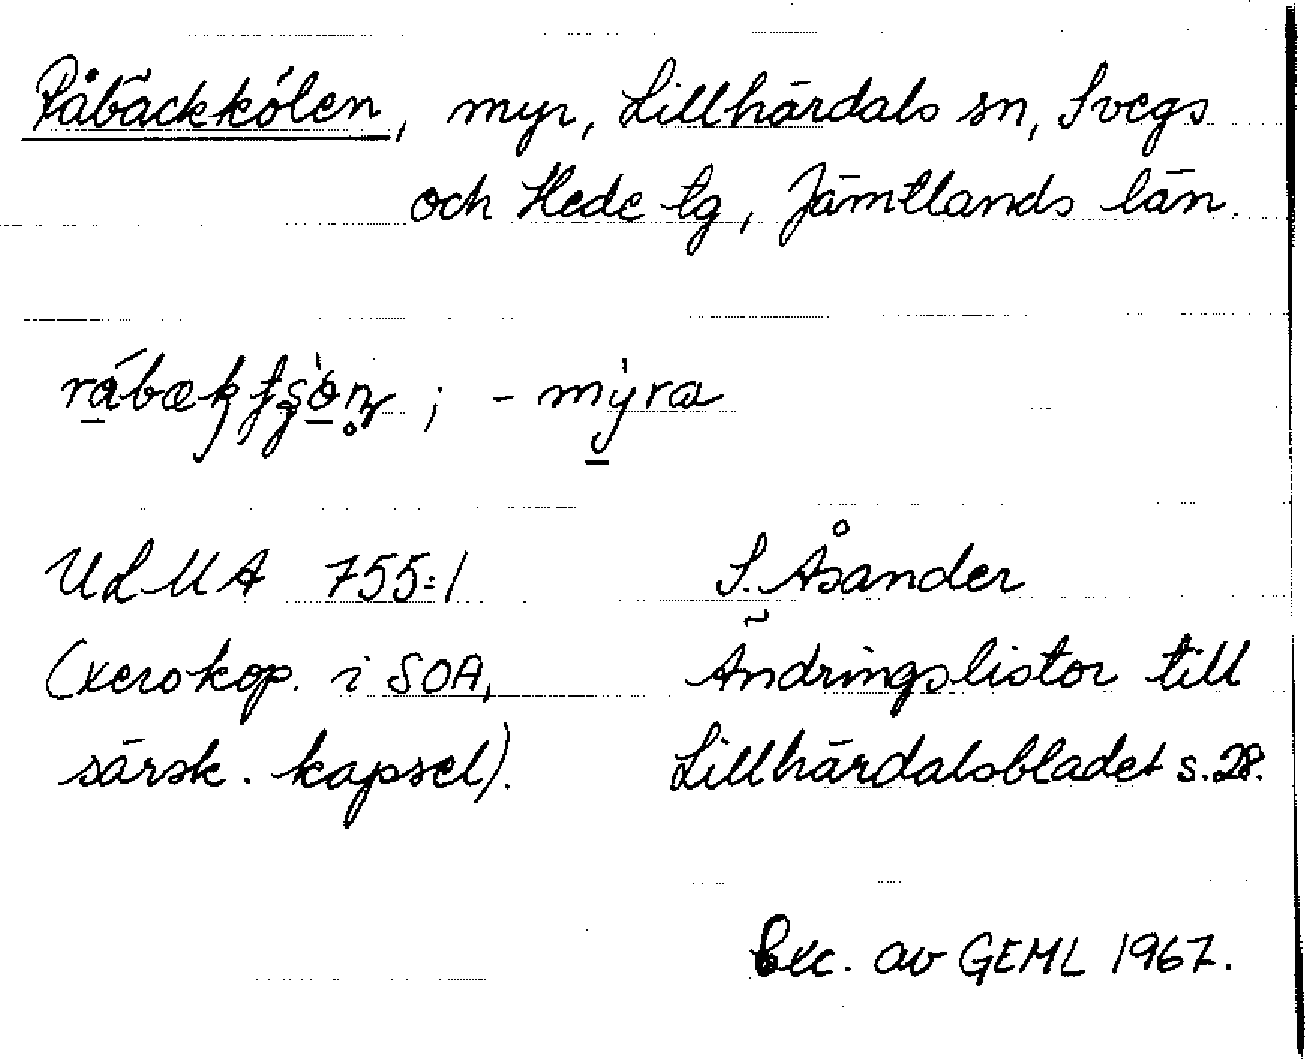 Råbäckkölen, myr, Lillhärdals sn, Svegs
och Hede tg, Jämtlands län.
; - mýra
ULMA 755:1 S. Åsander
(xerokop. i SOA, Ändringslistor till
särsk. kapsel). Lillhärdalsbladet s. 28.
Exc. av GEML 1967.